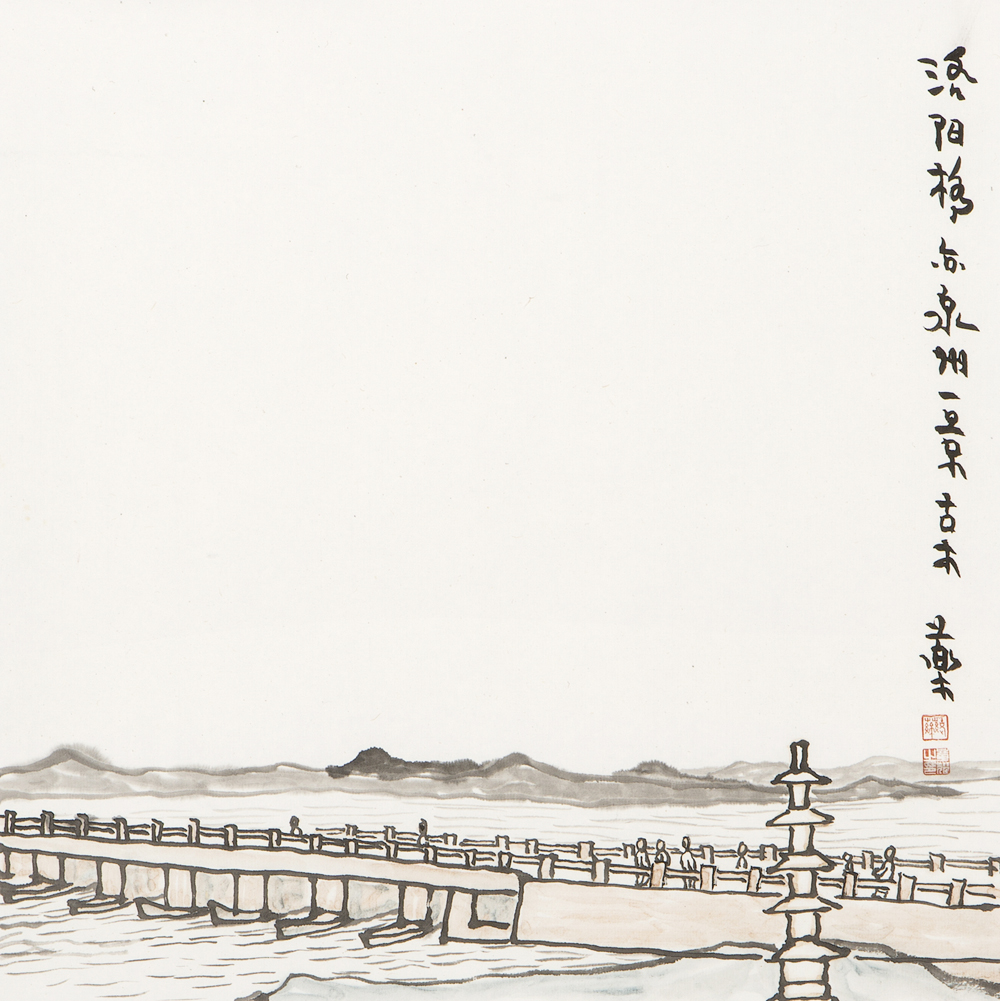 洛阳橋亦泉州一景古木